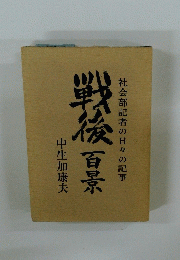 社会部記者の日々の記事
戦後百景
中生加康夫